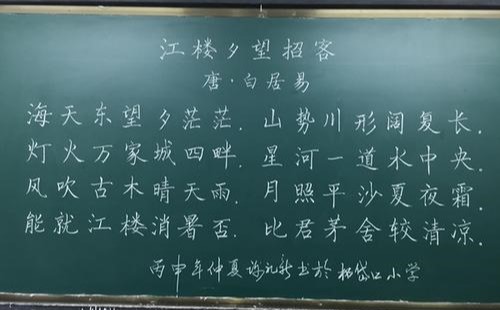 江楼夕望招客
唐·白居易
海天东望夕茫茫.山势川形阔复长.
灯火万家城四畔.星河一道水中央.
风吹古木晴天雨.月照平沙夏夜霜.
能就江楼消暑否.比君茅舍较清凉.
丙申年仲夏书於口小学